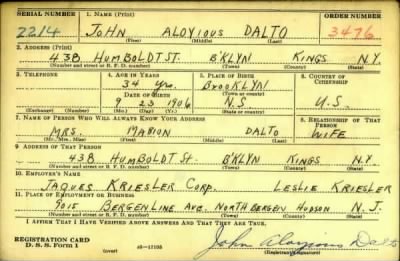 SERIAL NUMBER 1. NAME (Print) ORDER NUMBER
2214 JOHN ALOYIOUS DALTO 3476
(First) (Middle) (Last)
2. ADDRESS (Print)
438 HUMBOLDT ST. B'KLYN KINGS N.Y.
(Number and street or R. F. D. number) (Town) (County) (State)
3. TELEPHONE 4. AGE IN YEARS 5. PLACE OF BIRTH 6. COUNTRY OF CITIZENSHIP
34 Yrs. BROOKLYN
DATE OF BIRTH (Town or county)
9 23 1906 N.S. U.S.
(Exchange) (Number) (Mo.) (Day) (Yr.) (State or country)
7. NAME OF PERSON WHO WILL ALWAYS KNOW YOUR ADDRESS 8. RELATIONSHIP OF THAT PERSON
MRS. MARION DALTO WIFE
(Mr., Mrs., Miss) (First) (Middle) (Last)
9. ADDRESS OF THAT PERSON
438 HUMBOLDT St. B'KLYN KINGS N.Y.
(Number and street or R. F. D. number) (Town) (County) (State)
10. EMPLOYER'S NAME
JAQUES KRIESLER CORP. LESLIE KRIESLER
11. PLACE OF EMPLOYMENT OR BUSINESS
9015 BERGENLINE AVE. NORTH BERGEN HUDSON N.J.
(Number and street or R. F. D. number) (Town) (County) (State)
I AFFIRM THAT I HAVE VERIFIED ABOVE ANSWERS AND THAT THEY ARE TRUE.
REGISTRATION CARD
D. S. S. Form 1 (over) 16—17105 John Aloyious Dalto